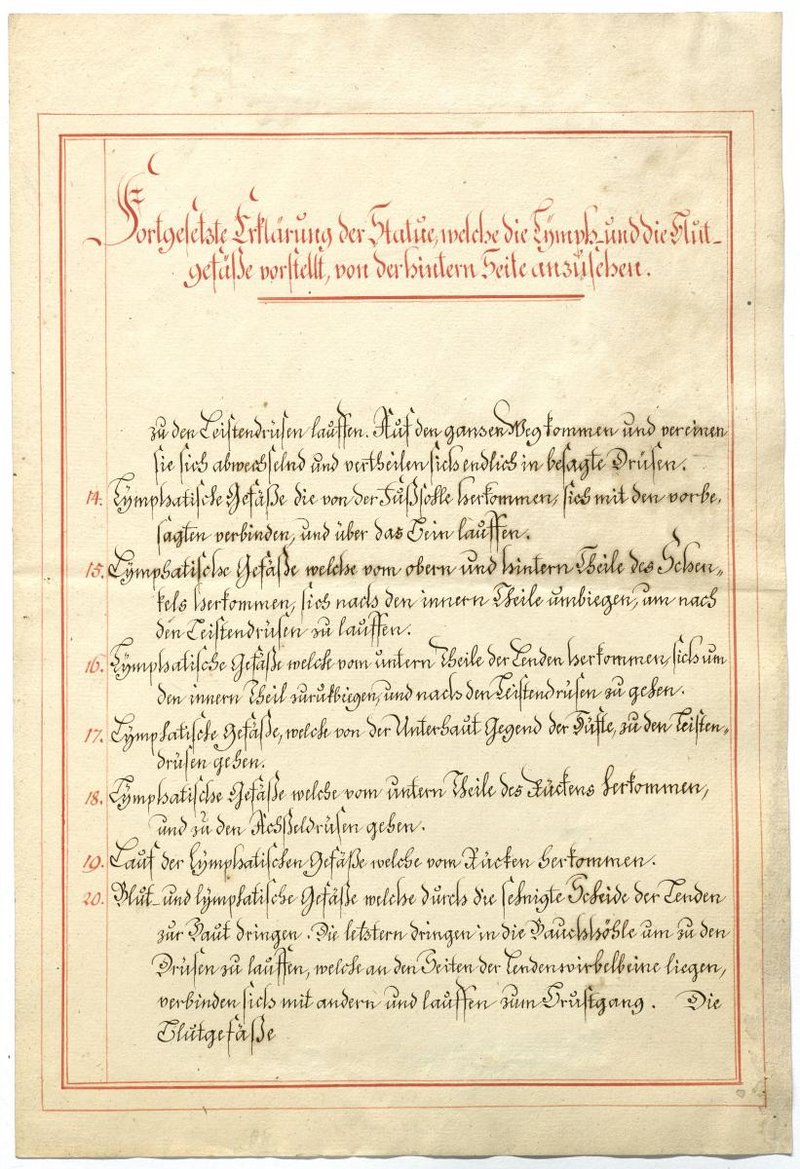 Fortgesetzte Erklärung der Statue, welche die Lymph- und die Blut-
gefäße vorstellt, von der hintern Seite anzusehen.
zu den Leistendrüsen lauffen. Auf den ganzen Weg kommen und vereinen
sie sich abwechselnd und vertheilen sich endlich in besagte Drüsen.
14. Lymphatische Gefäße die von der Fußsolle herkommen, sich mit den vorbe,
sagten verbinden, und über das Bein lauffen.
15. Lymphatische Gefäße welche vom obern und hintern Theile des Schen„
kels herkommen, sich nach den innern Theile umbiegen, um nach
den Leistendrüsen zu lauffen.
16. Lymphatische Gefäße welche vom untern Theile der Lenden herkommen, sich um
den innern Theil zurukbiegen, und nach den Leistendrüsen zu gehen.
17. Lymphatische Gefäße, welche von der Unterhaut Gegend der Hüfte, zu den Leisten„
drüsen gehen.
18. Lymphatische Gefäße welche vom untern Theile des Rückens herkommen,
und zu den Achßeldrüsen gehen.
19. Lauf der lymphatischen Gefäße welche vom Rücken herkommen.
20. Blut- und lymphatische Gefäße welche durch die sehnigte Scheide der Lenden
zur Haut dringen. Die letztern dringen in die Bauchhöhle um zu den
Drüsen zu lauffen, welche an den Seiten der Lendenwirbelbeine liegen,
verbinden sich mit andern und lauffen zum Brustgang. Die
Blutgefäße